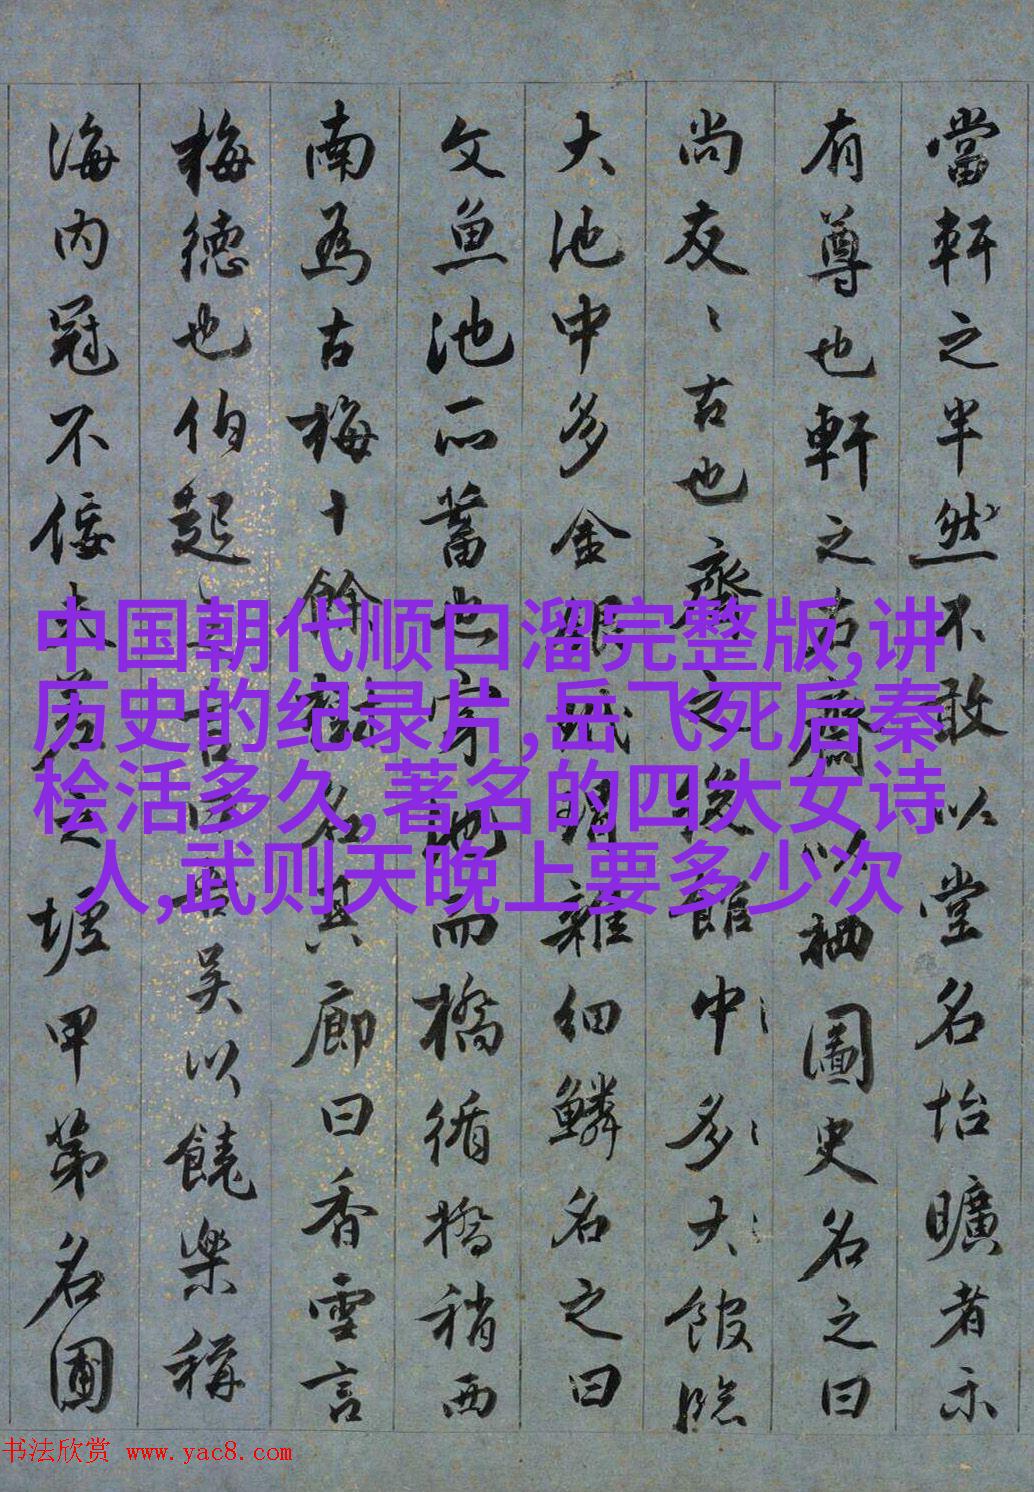 當軒之半然不敢以堂名怡曠者示
有尊也軒之右齋以栖圖史名之曰
尚友尚友古也齋之後館中多大館臨
大池中多金銀玳瑁雜細鱗名之曰
文魚池所蓄也穿池而橋循橋稍西
南為古梅十餘樹名其廊曰香雪言
梅德也伯起吳以饒樂稱
海内冠不佞夫差之墟甲第名圃
中国朝代顺口溜完整版,讲
历史的纪录片,岳飞死后秦
桧活多久,著名的四大女诗
人,武则天晚上要多少次
书法欣赏 www.yac8.com